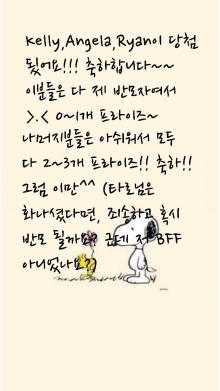 Kelly,Angela,Ryan이 당첨
됬어요!!! 축하합니다~~
이분들은 다 제 반모자여서
>.< 0~1개 프라이즈~
나머지분들은 아쉬워서 모두
다 2~3개 프라이즈!! 축하!!
그럼 이만^^ (타로님은
화나셨다면, 죄송하고 혹시
반모 될까요? 근데 저 BFF
아니었나요?